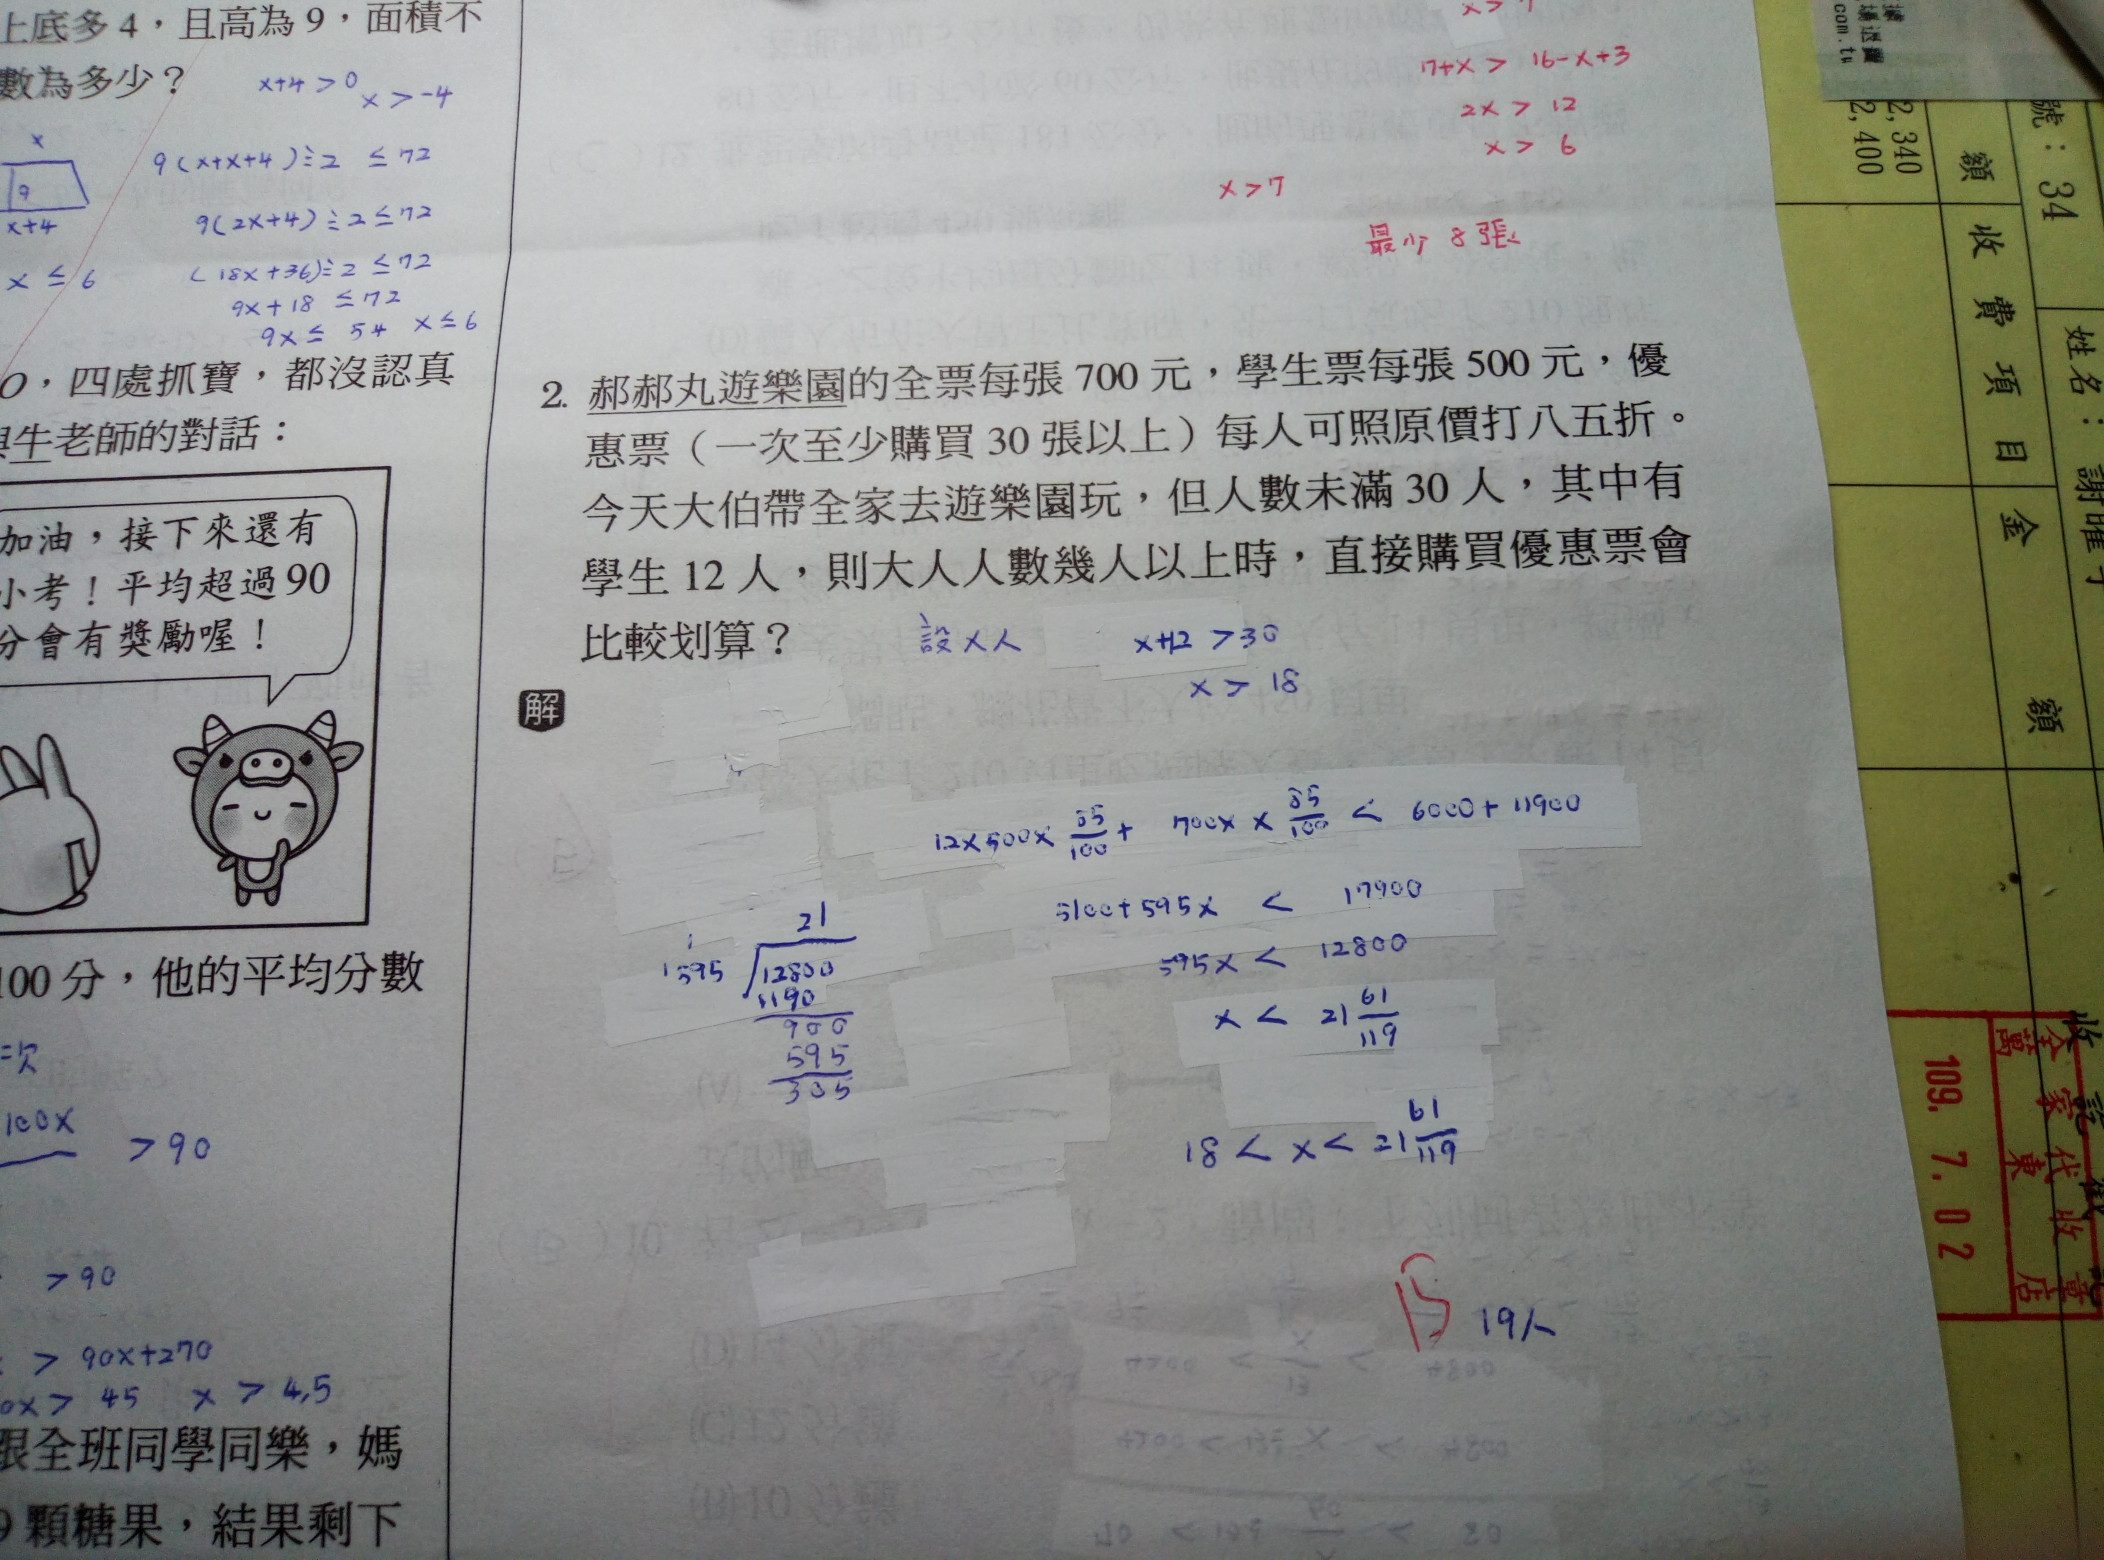 上底多4，且高為9，面積不
數為多少？
x+4>0
x>-4
x
9
x+4
9(x+x+4)÷2 ≤72
9(2x+4)÷2≤72
(18x+36)÷2 ≤72
9x+18 ≤72
9x≤ 54 x≤6
x≤6
O，四處抓寶，都沒認真
與牛老師的對話：
加油，接下來還有
小考！平均超過90
分會有獎勵喔！
100分，他的平均分數
100x
>90
>90
> 90x+270
x> 45 x > 4.5
跟全班同學同樂，媽
9顆糖果，結果剩下
x>7
17+x> 16-x+3
2x > 12
x> 6
x>7
最少 8 張
2. 郝郝丸遊樂園的全票每張700元，學生票每張500元，優
惠票（一次至少購買30張以上）每人可照原價打八五折。
今天大伯帶全家去遊樂園玩，但人數未滿30人，其中有
學生12人，則大人人數幾人以上時，直接購買優惠票會
比較划算？
設x人
x+12 >30
x> 18
解
12×500× 85/100 + 700x × 85/100 < 6000+11900
5100+595x < 17900
595x< 12800
x< 21 61/119
18<x<21 61/119
21
595 12800
1190
900
595
305
15
19人
據
退
com.tw
2,340
2,400
號：34
姓名：謝
額
收費項目
金額
收
全家
代收
東
店
109. 7. 02